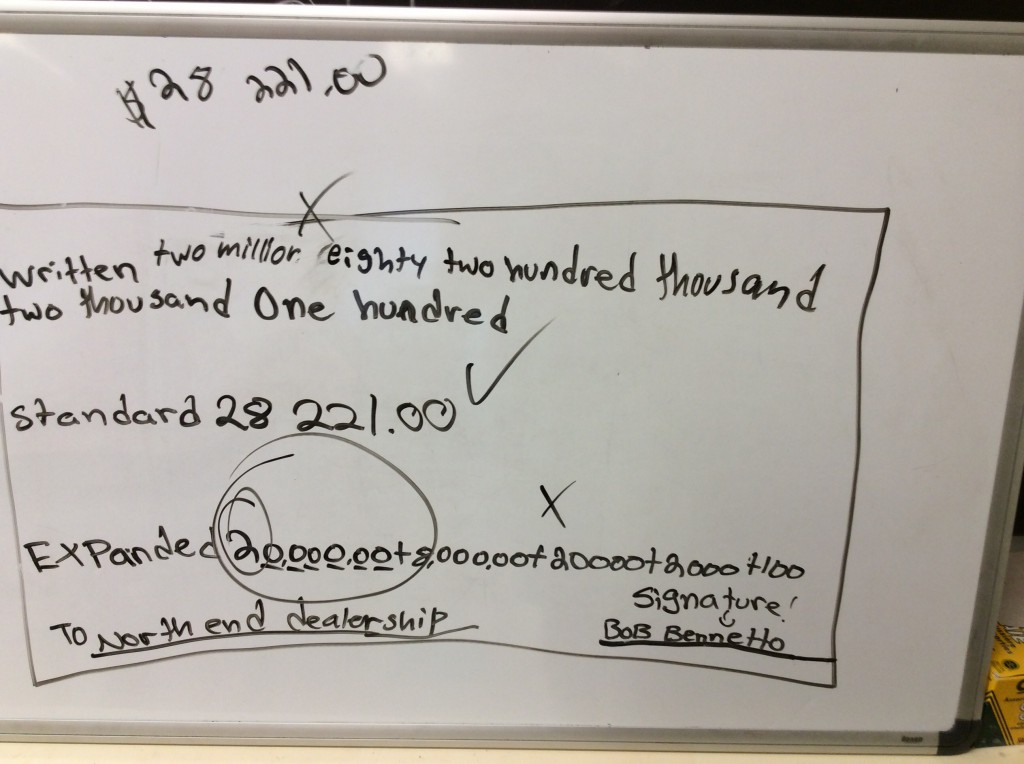 $28 221.00
written two million eighty two hundred thousand
two thousand One hundred
Standard 28 221.00
Expanded 20,000,00+8,000,00+20000+2,000+100
Signature!
To North end dealership
BoB Bennetto